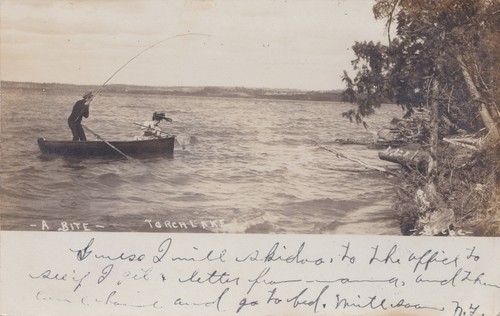 - A BITE - TORCH LAKE
Guess I will skidoo to the office to
see if I get a letter from mama, and then
come home and go to bed. Will soon N.Y.